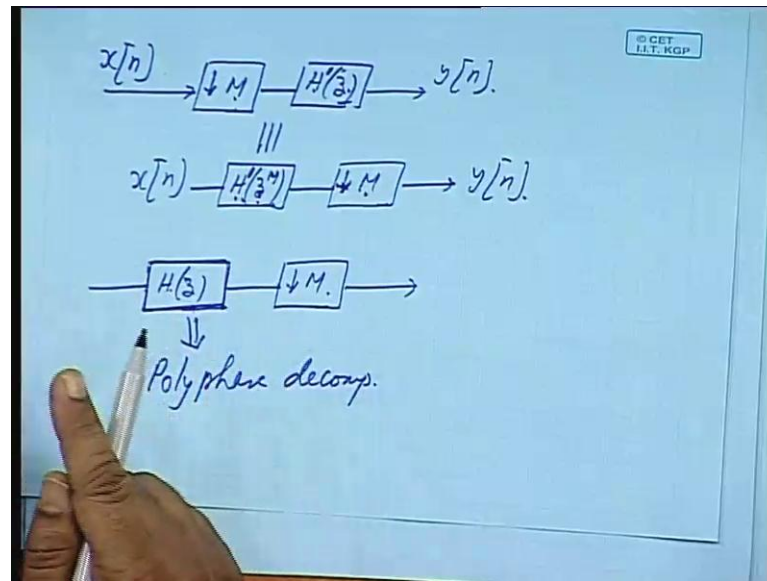 © CET
I.I.T. KGP
x[n] ↓M H'(z) y[n].
|||
x[n] H'(z^M) ↓M y[n].
H(z) ↓M.
⇓
Polyphase decomp.